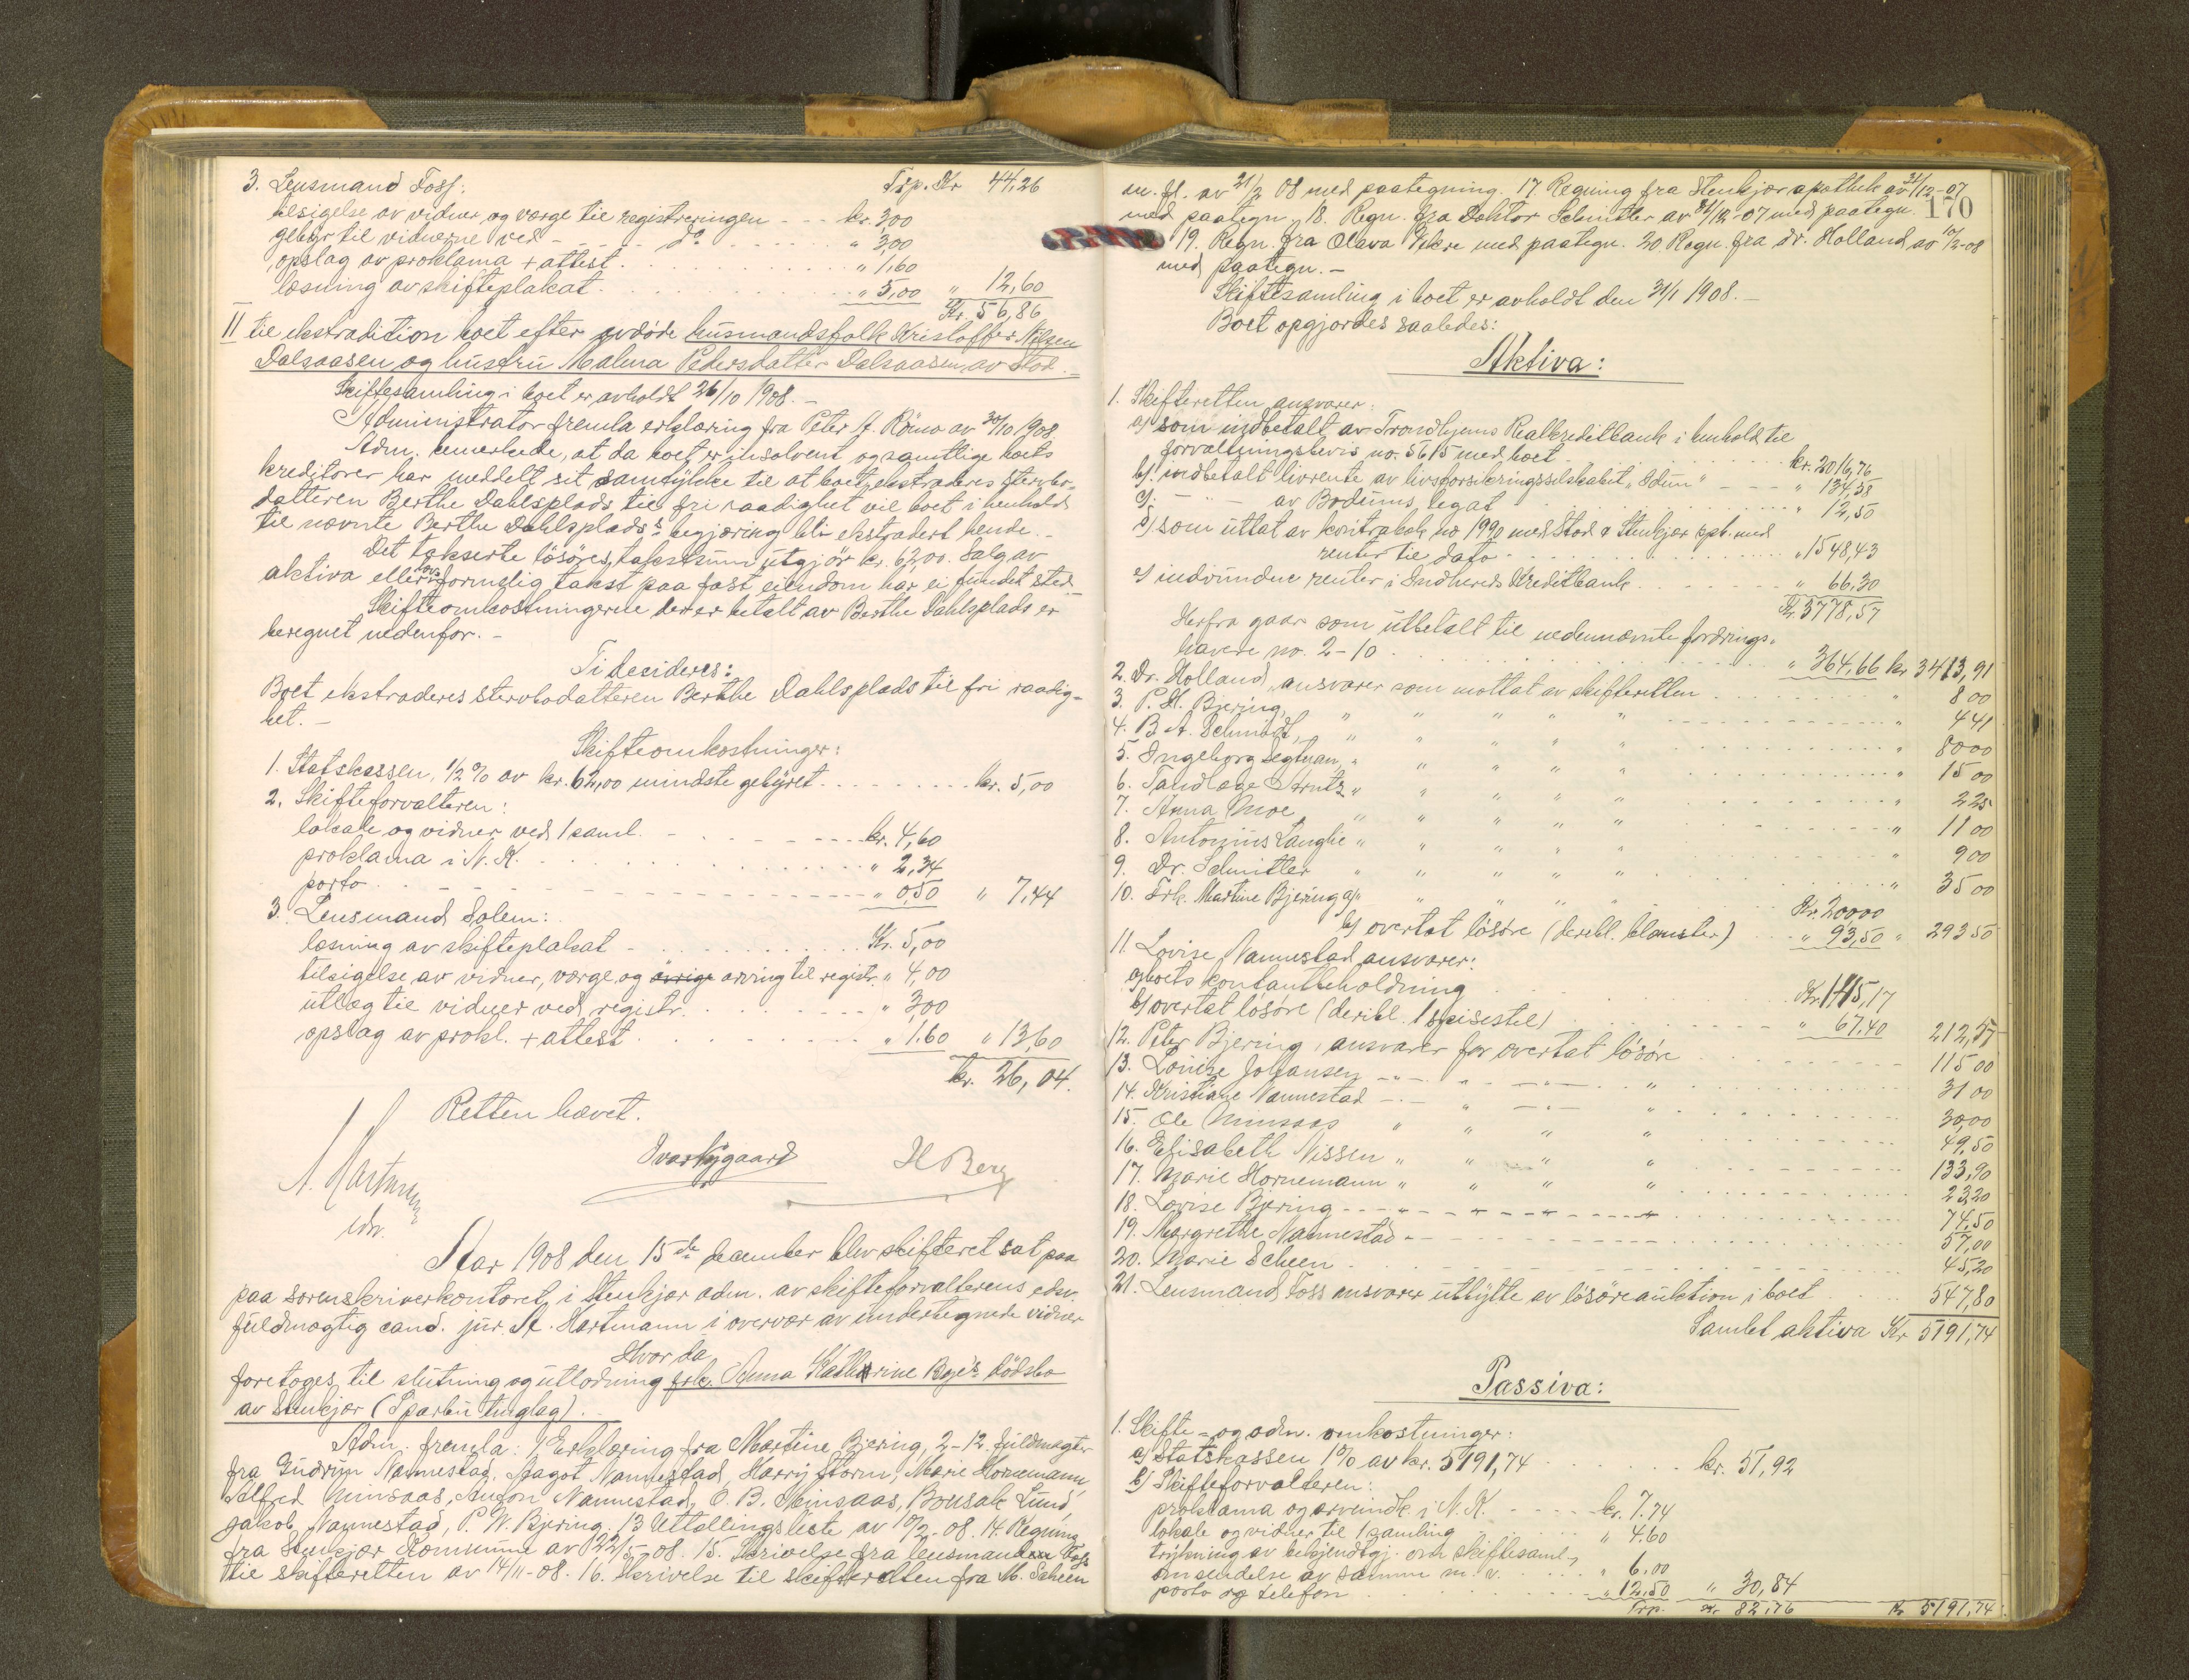 3. Lensmand Foss: Trp. Kr 44,26
tilsigelse av vidner og værge til registreringen - - - kr. 3,00
gebyr til vidnerne ved - - - - - do . . . . . " 3,00
opslag av proklama + attest . . . . . " 1,60
læsning av skifteplakat . . . . . " 5,00 " 12,60
Kr. 56,86
II til ekstradition boet efter avdøde husmandsfolk Kristoffer Nilsen
Dalsaasen og hustru Malena Pedersdatter Dalsaasen av Stod.
Skiftesamling i boet er avholdt 26/10 1908. -
Administrator fremla erklæring fra Peter A. Römo av 30/10 1908
Adm. bemerkede, at da boet er insolvent og samtlige boets
kreditorer har meddelt sit samtykke til at boet ekstraderes stervbo-
datteren Berthe Dahlsplads til fri raadighet vil boet i henhold
til nævnte Berthe Dahlsplads's begjæring bli ekstradert hende. -
Det takserte lösöres takstsum utgjör kr. 62,00. Salg av
aktiva eller avformelig takst paa fast eiendom har ei fundet sted. -
Skifteomkostningerne der er betalt av Berthe Dahlsplads er
beregnet nedenfor. -
Ti decideres:
Boet ekstraderes stervbodatteren Berthe Dahlsplads til fri raadig-
het. -
Skifteomkostninger:
1. Statskassen, 1/2 % av kr. 62,00 mindste gebyret . . . . . kr. 5,00
2. Skifteforvalteren:
lokale og vidner ved 1 saml. - - - kr. 4,60
proklama i N. K. . . . . . " 2,34
porto . . . . . " 0,50 " 7,44
3. Lensmand Solem:
læsning av skifteplakat - . . . . . Kr. 5,00
tilsigelse av vidner, værge og övrige arving til registr. " 4,00
utlæg til vidner ved registr. . . . . . " 3,00
opslag av prokl. + attest . . . . . " 1.60 " 13,60
kr. 26,04.
Retten hævet.
A. Hartmann Ivar Nygaard H Berg
edsv.
Aar 1908 den 15de december blev skifteret sat paa
paa sorenskriverkontoret i Stenkjær adm. av skifteforvalterens edsv.
fuldmægtig cand. jur. A. Hartmann i overvær av undertegnede vidner
Hvor da
foretoges til slutning og utlodning frk. Anna Kathrine Bye's dödsbo
av Stenkjær (Sparbu tinglag). -
Adm. fremla: 1 Erklæring fra Martine Bjering, 2-12. fuldmagter
fra Gudrun Nannestad, Aagot Nannestad, Harry Storm, Marie Hornemann,
Alfred Minsaas, Anton Nannestad, O. B. Minsaas, Bonsak Lund,
Jakob Nannestad, P. W. Bjering. 13 Uttællingsliste av 10/2-08. 14. Regning
fra Stenkjær Kommune av 22/5-08. 15. Skrivelse fra lensmand Foss
til skifteretten av 14/11-08. 16. Skrivelse til skifteretten fra M. Scheen
m. fl. av 21/2 08 med paategning. 17. Regning fra Stenkjær apothek av 31/12-07
170
med paategn. 18. Regn. fra Doktor Schmitler av 31/12-07 med paategn.
19. Regn. fra Olava Vekre med paategn. 20. Regn. fra dr. Holland av 10/2-08
med paategn. -
Skiftesamling i boet er avholdt den 31/1 1908. -
Boet opgjordes saaledes:
Aktiva:
1. Skifteretten ansvarer:
a) som indbetalt av Trondhjems Realkreditbank i henhold til
forvaltningsbevis no. 5615 med boet . . . . . kr. 2016,76
b) indbetalt livrente av livsforsikringsselskabet "Idun" - - - " 134,58
c) - " - av Bodums legat . . . . . " 12,50
d) som uttat av kontrabok no 1990 med Stod & Stenkjær spb. med
renter til dato . . . . . " 1548,43
e) indvundne renter i Indherreds Kreditbank . . . . . " 66,30
Kr. 3778,57
Herfra gaar som utbetalt til nedennævnte fordrings-
havere no. 2-10 . . . . . " 364,66 kr 3413,91
2. Dr. Holland, ansvarer som mottat av skifteretten . . . . . " 8 00
3. P. H. Bjering, " " " " " . . . . . " 4 41
4. B A. Schmidt, " " " " " . . . . . " 80 00
5. Ingeborg Segtnan, " " " " " . . . . . " 15 00
6. Tandlæge Arntz " " " " " . . . . . " 2 25
7. Anna Moe " " " " " . . . . . " 11 00
8. Antonius Langlie " " " " " . . . . . " 9 00
9. Dr. Schmitler " " " " " . . . . . " 35 00
10. Frk. Martine Bjering a) " " " " " . . . Kr. 200,00
b) overtat lösöre (deribl. blomster) . . . " 93,50 " 293 50
11. Lovise Nannestad ansvarer:
a) boets kontantbeholdning . . . . . Kr. 145,17
b) overtat lösöre (deribl. 1 spisestel) . . . . . " 67,40 212,57
12. Peter Bjering, ansvarer for overtat lösöre . . . . . 115 00
13. Louise Johansen - " - " - " - " . . . . . 31 00
14. Kristiane Nannestad - " - " - " - " . . . . . 30,00
15. Ole Minsaas " " " " . . . . . 49,50
16. Elisabeth Nissen " " " " . . . . . 133,90
17. Marie Hornemann " " " " . . . . . 23,20
18. Lovise Bjering - - - " - " - " - - - " . . . . . 74,50
19. Margrethe Nannestad - - - - - 57,00
20. Marie Scheen . . . . . 45,20
21. Lensmand Foss ansvarer utbytte av lösöreauktion i boet . . . . . 547,80
Samlet aktiva Kr 5191,74
Passiva:
1. Skifte- og adm. omkostninger:
a) Statskassen 1% av kr. 5191,74 . . . . . kr. 51,92
b) Skifteforvalteren:
proklama og arveindk. i N. K. - - - - kr. 7.74
lokale og vidner til 1 samling . . . . . " 4.60
trykning av bekjendtgj. om skiftesaml.,
omsendelse av samme m. v. . . . . . " 6.00
porto og telefon . . . . . " 12,50 " 30,84
Trp. Kr 82,76 Kr 5191,74